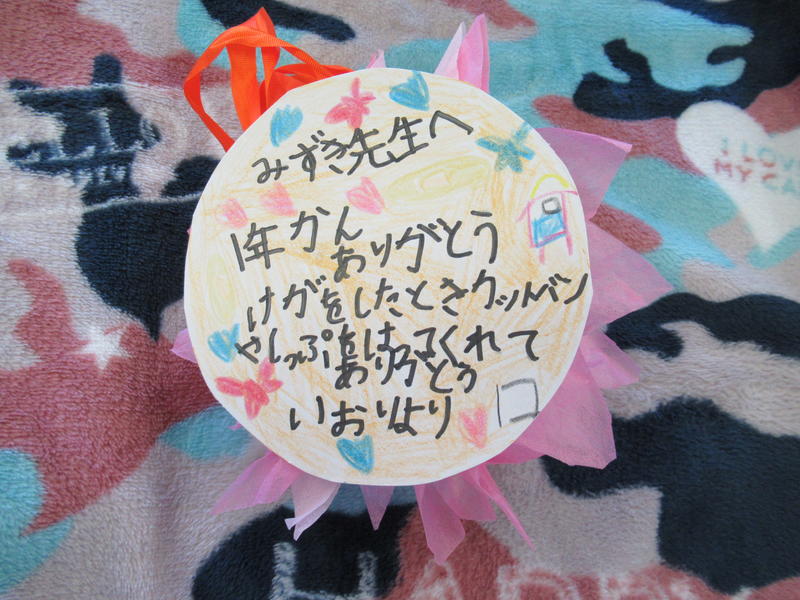 みずき先生へ
1年かん
ありがとう
けがをしたときクットバン
やしっぷをはってくれて
ありがとう
いおりより
I LOVE
MY CA